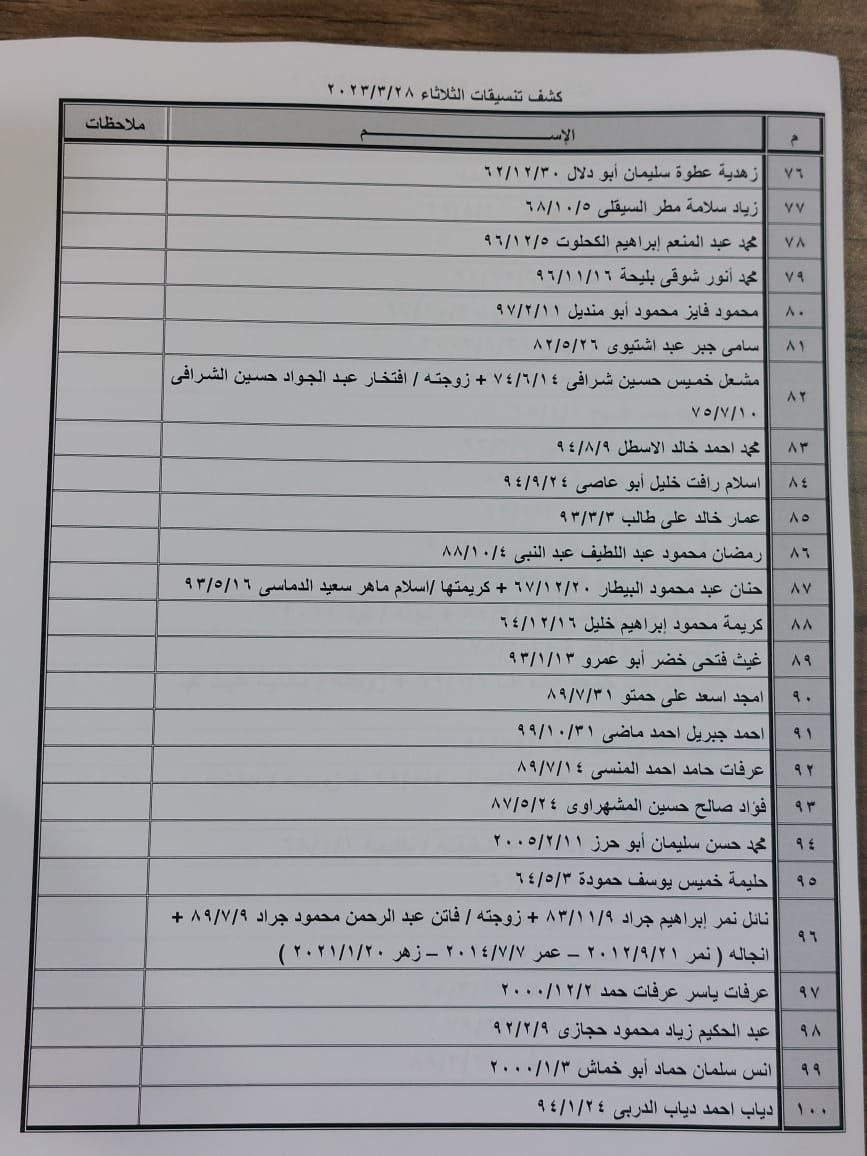 كشف تنسيقات الثلاثاء ٢٠٢٣/٣/٢٨
م الإســـــــــــم ملاحظات
٧٦ زهدية عطوة سليمان أبو دلال ٦٢/١٢/٣٠
٧٧ زياد سلامة مطر السيقلى ٦٨/١٠/٥
٧٨ محمد عبد المنعم إبراهيم الكحلوت ٩٦/١٢/٥
٧٩ محمد أنور شوقى بليحة ٩٦/١١/١٦
٨٠ محمود فايز محمود أبو منديل ٩٧/٢/١١
٨١ سامى جبر عبد اشتيوى ٨٢/٥/٢٦
٨٢ مشعل خميس حسين شرافى ٧٤/٦/١٤ + زوجته / افتخار عبد الجواد حسين الشرافى
٧٥/٧/١٠
٨٣ محمد احمد خالد الاسطل ٩٤/٨/٩
٨٤ اسلام رافت خليل أبو عاصى ٩٤/٩/٢٤
٨٥ عمار خالد على طالب ٩٣/٣/٣
٨٦ رمضان محمود عبد اللطيف عبد النبى ٨٨/١٠/٤
٨٧ حنان عبد محمود البيطار ٦٧/١٢/٢٠ + كريمتها /اسلام ماهر سعيد الدماسى ٩٣/٥/١٦
٨٨ كريمة محمود إبراهيم خليل ٦٤/١٢/١٦
٨٩ غيث فتحى خضر أبو عمرو ٩٣/١/١٣
٩٠ امجد اسعد على حمتو ٨٩/٧/٣١
٩١ احمد جبريل احمد ماضى ٩٩/١٠/٣١
٩٢ عرفات حامد احمد المنسى ٨٩/٧/١٤
٩٣ فؤاد صالح حسين المشهراوى ٨٧/٥/٢٤
٩٤ محمد حسن سليمان أبو حرز ٢٠٠٥/٢/١١
٩٥ حليمة خميس يوسف حمودة ٦٤/٥/٣
٩٦ نائل نمر إبراهيم جراد ٨٣/١١/٩ + زوجته / فاتن عبد الرحمن محمود جراد ٨٩/٧/٩ +
انجاله ( نمر ٢٠١٢/٩/٢١ – عمر ٢٠١٤/٧/٧ – زهر ٢٠٢١/١/٢٠ )
٩٧ عرفات ياسر عرفات حمد ٢٠٠٠/١٢/٢
٩٨ عبد الحكيم زياد محمود حجازى ٩٢/٢/٩
٩٩ انس سلمان حماد أبو خماش ٢٠٠٠/١/٣
١٠٠ دياب احمد دياب الدربى ٩٤/١/٢٤